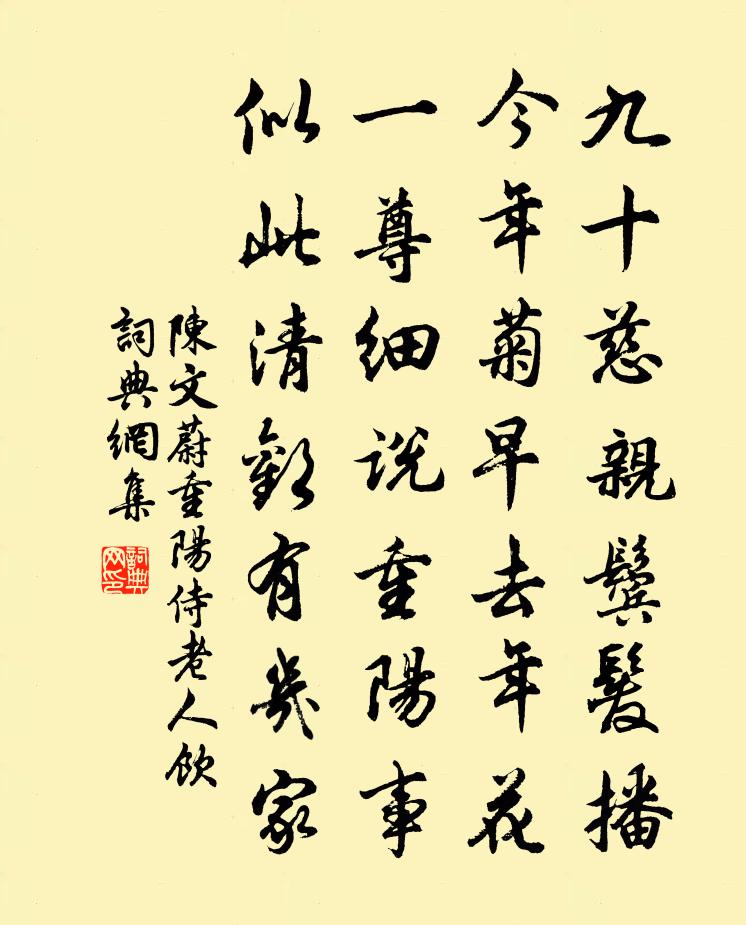 九十慈親鬢髮播
今年菊早去年花
一尊細說重陽事
似此清歡有幾家
陳文蔚重陽侍老人飲
詞典網集
詞典网印